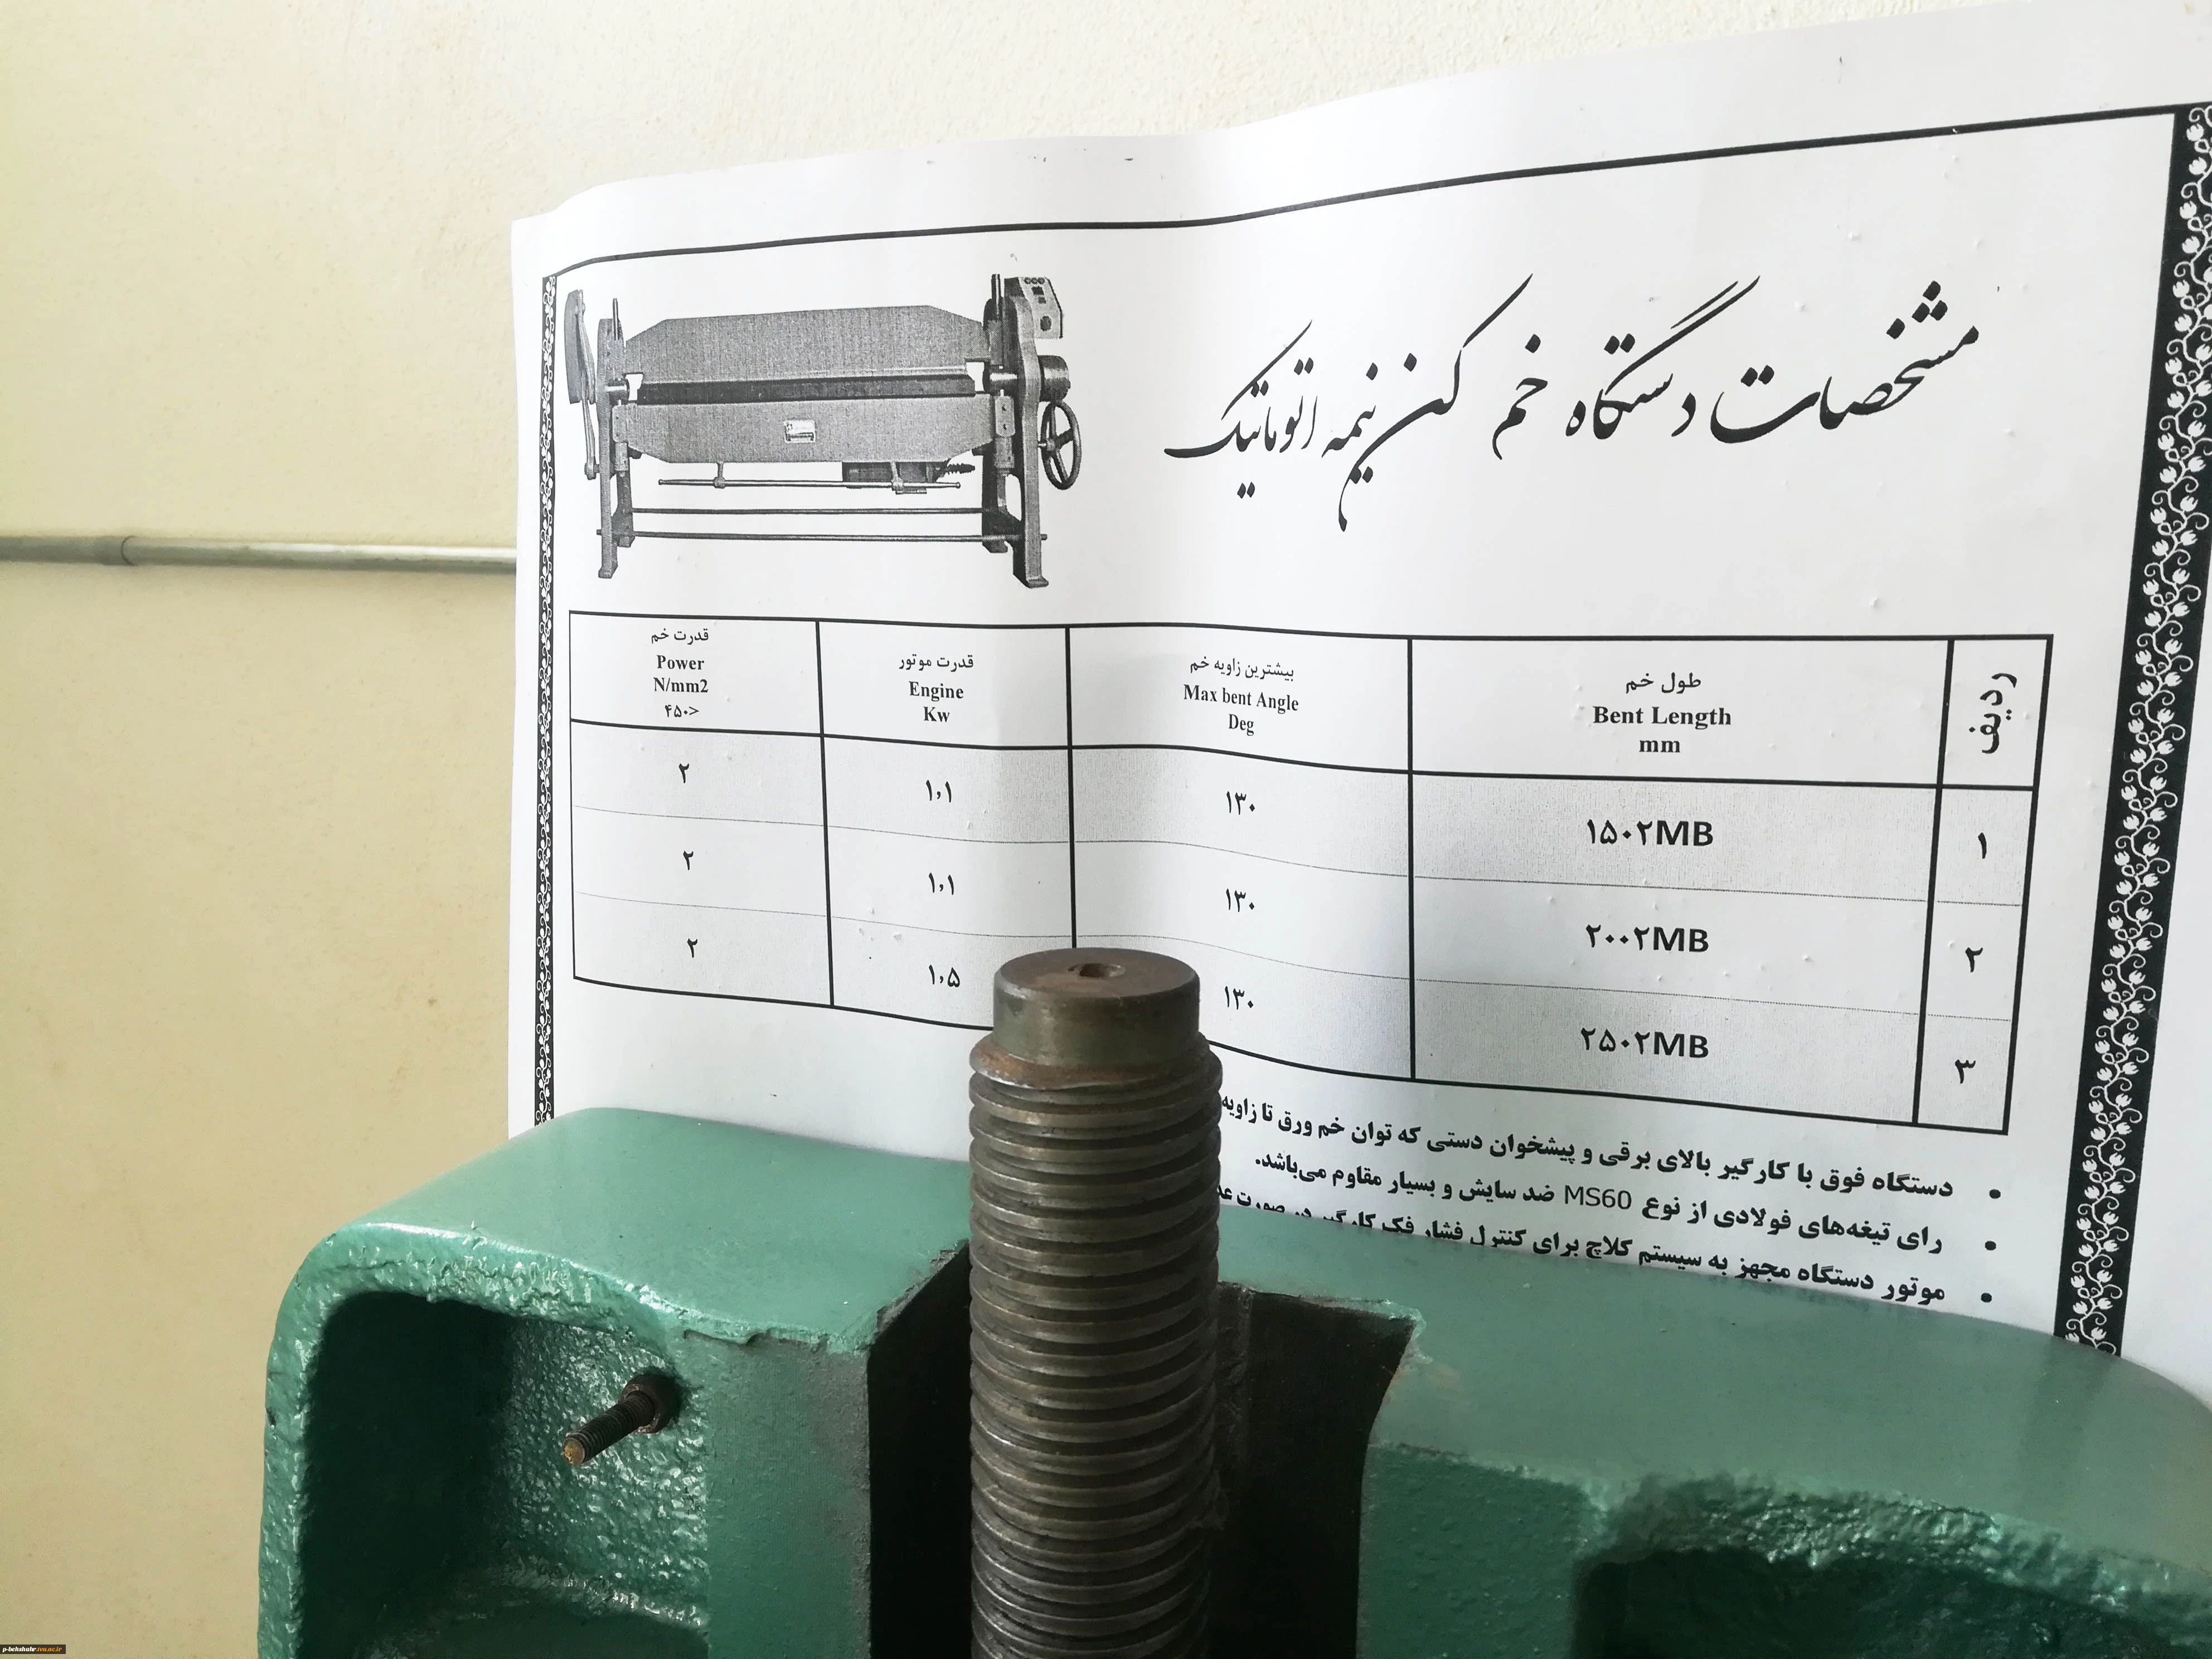 مشخصات دستگاه خم کن نیمه اتوماتیک
ردیف
طول خم
Bent Length
mm
بیشترین زاویه خم
Max bent Angle
Deg
قدرت موتور
Engine
Kw
قدرت خم
Power
N/mm2
۴۵۰>
۱ ۱۵۰۲MB ۱۳۰ ۱,۱ ۲
۲ ۲۰۰۲MB ۱۳۰ ۱,۱ ۲
۳ ۲۵۰۲MB ۱۳۰ ۱,۵ ۲
• دستگاه فوق با کارگیر بالای برقی و پیشخوان دستی که توان خم ورق تا زاویه
• رای تیغه‌های فولادی از نوع MS60 ضد سایش و بسیار مقاوم می‌باشد.
• موتور دستگاه مجهز به سیستم کلاچ برای کنترل فشار فک کارگیر در صورت
p-behshahr.tvu.ac.ir